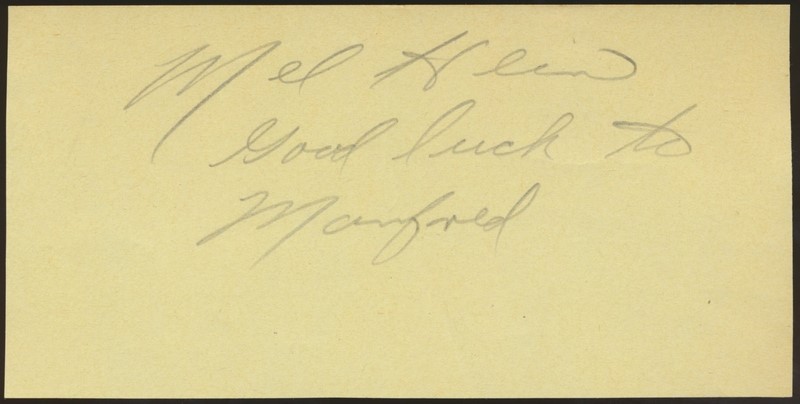 Mel Hein
Good luck to
Manfred